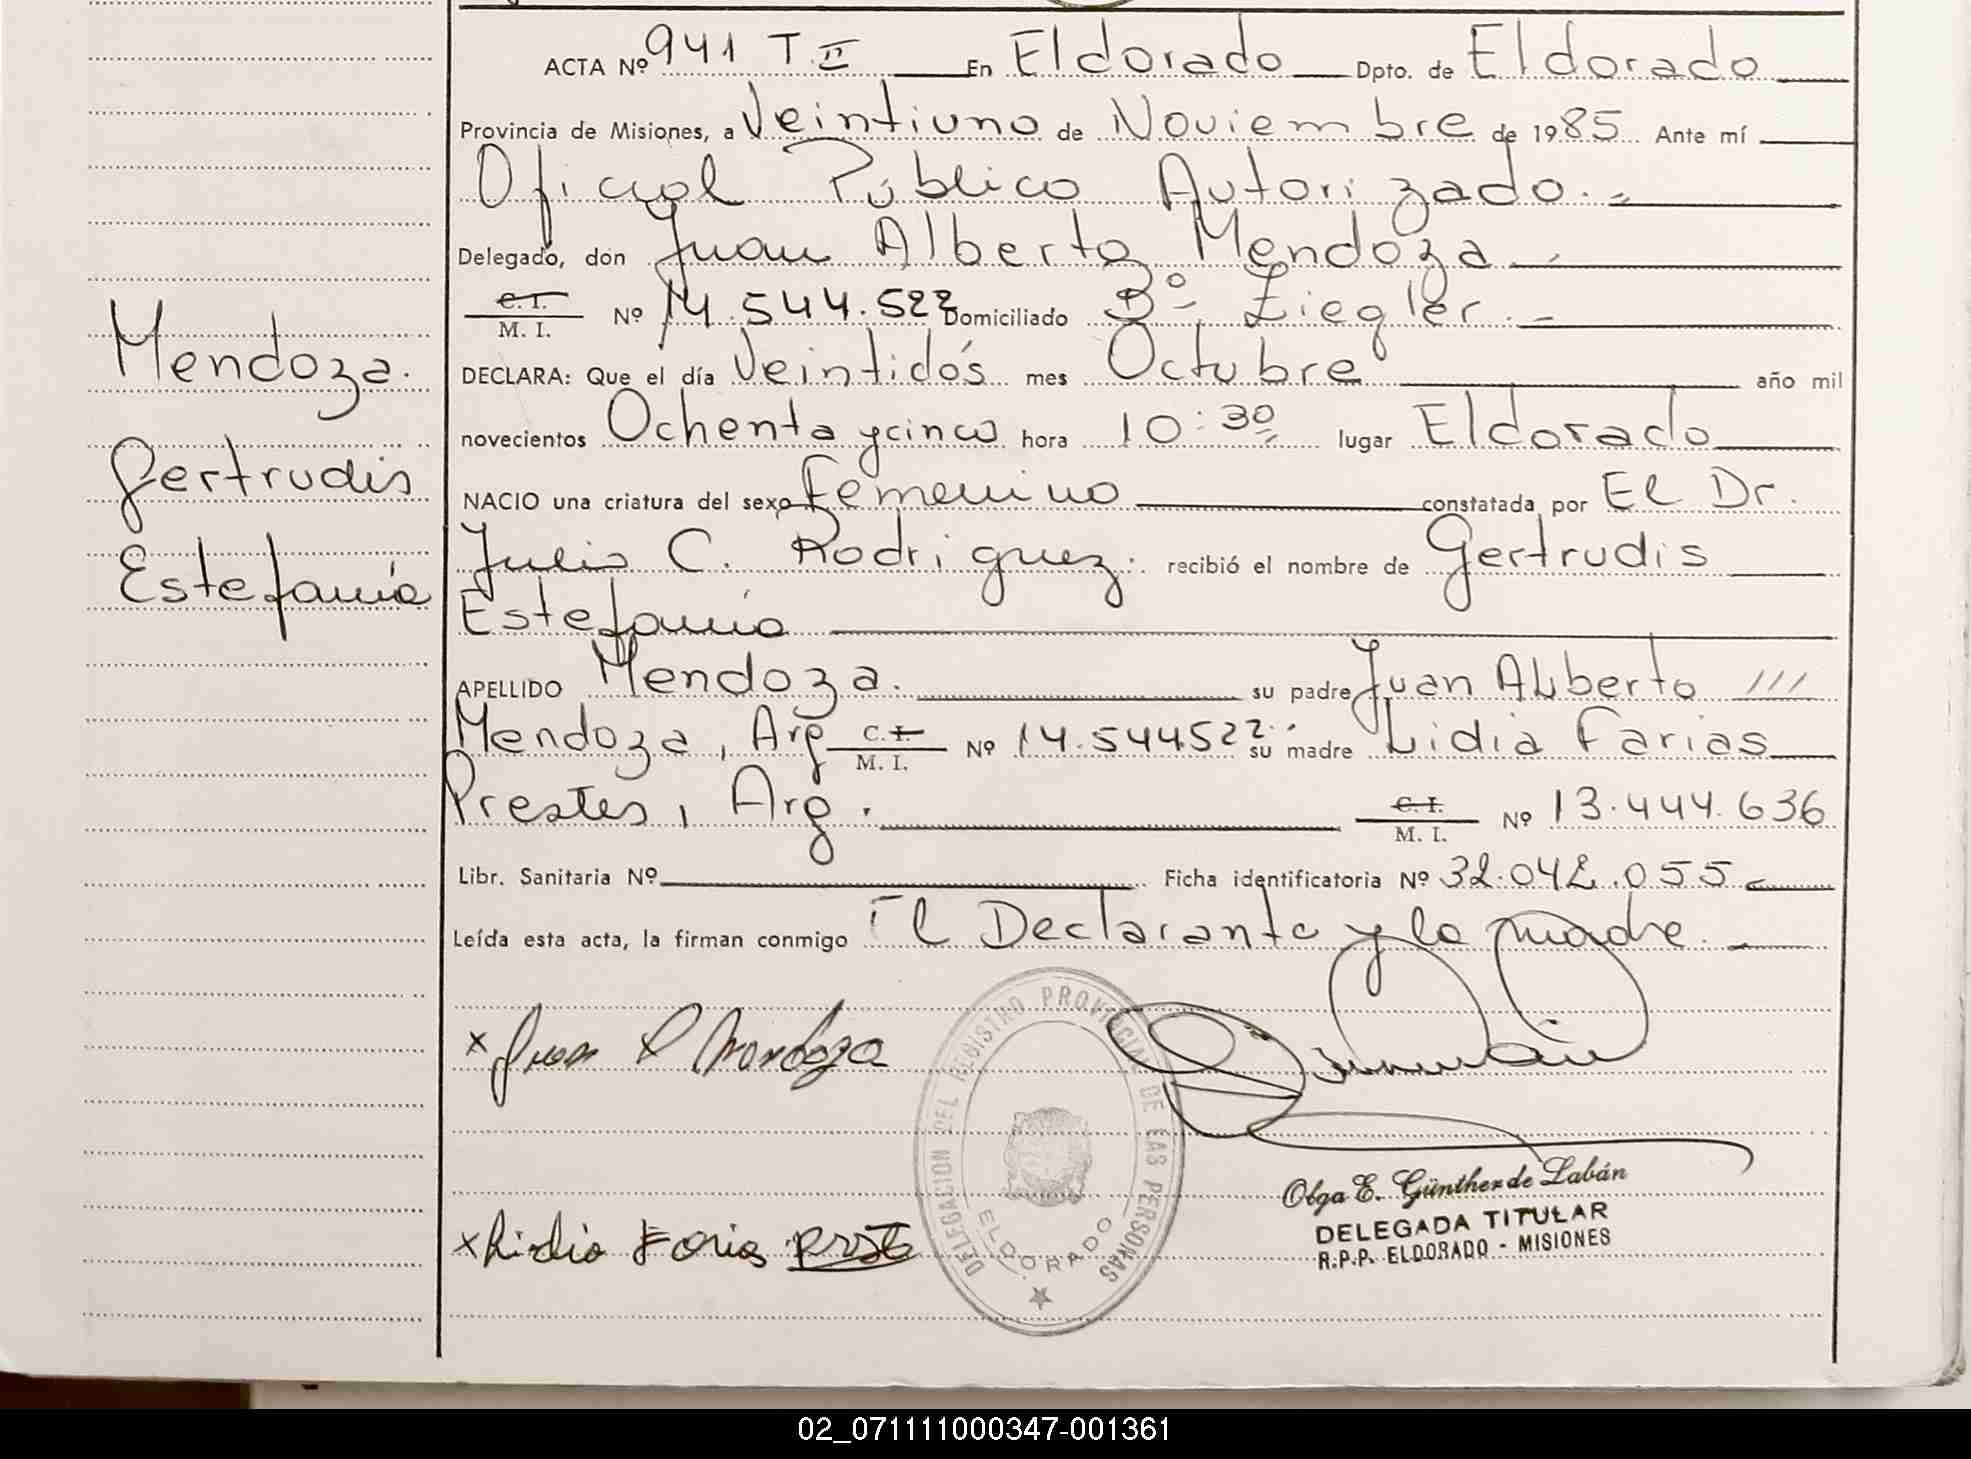 ACTA Nº 941 T. II En Eldorado Dpto. de Eldorado
Provincia de Misiones, a Veintiuno de Noviembre de 1985 Ante mí
Oficial Público Autorizado.
Delegado, don Juan Alberto Mendoza
C.I.
M. I. Nº 14.544.522 Domiciliado Bº Ziegler.
DECLARA: Que el día Veintidós mes Octubre año mil
novecientos Ochenta y cinco hora 10:30 lugar Eldorado
NACIO una criatura del sexo Femenino constatada por El Dr.
Julio C. Rodriguez. recibió el nombre de Gertrudis
Estefanía
APELLIDO Mendoza. su padre Juan Alberto ///
Mendoza, Arg C.I.
M. I. Nº 14.544522 su madre Lidia Farias
Prestes, Arg. C.I.
M. I. Nº 13.444.636
Libr. Sanitaria Nº Ficha identificatoria Nº 32.042.055
Leída esta acta, la firman conmigo El Declarante y la madre.
Mendoza.
Gertrudis
Estefanía
x Juan A Mendoza
x Lidia Faria
DELEGACION DEL REGISTRO PROVINCIAL DE LAS PERSONAS
ELDORADO
Olga E. Günther de Labán
DELEGADA TITULAR
R.P.P. ELDORADO - MISIONES
02_071111000347-001361